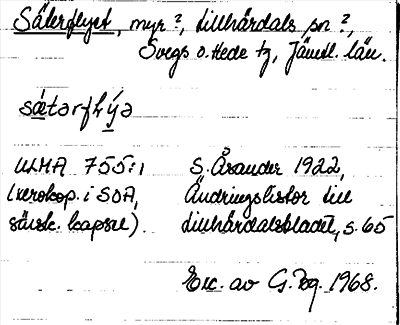 Säterflyet, myr?, Lillhärdals sn?,
Svegs o. Hede tg, Jämtl. län.
ULMA 755:1 S. Åsander 1922,
(xerokop. i SOA, Ändringslistor till
särsk. kapsel). Lillhärdalsbladet, s. 65
Exc. av G. 1968.